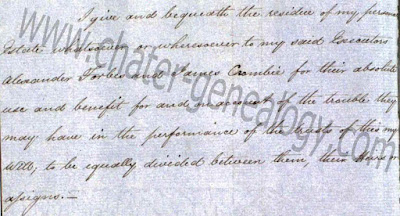 I give and bequeath the residue of my personal
Estate whatsoever or wheresoever to my said Executors
Alexander Forbes and James Crombie for their absolute
use and benefit for and on account of the trouble they
may have in the performance of the trusts of this my
Will, to be equally divided between them, their Heirs or
assigns.—
www.chater-genealogy.com